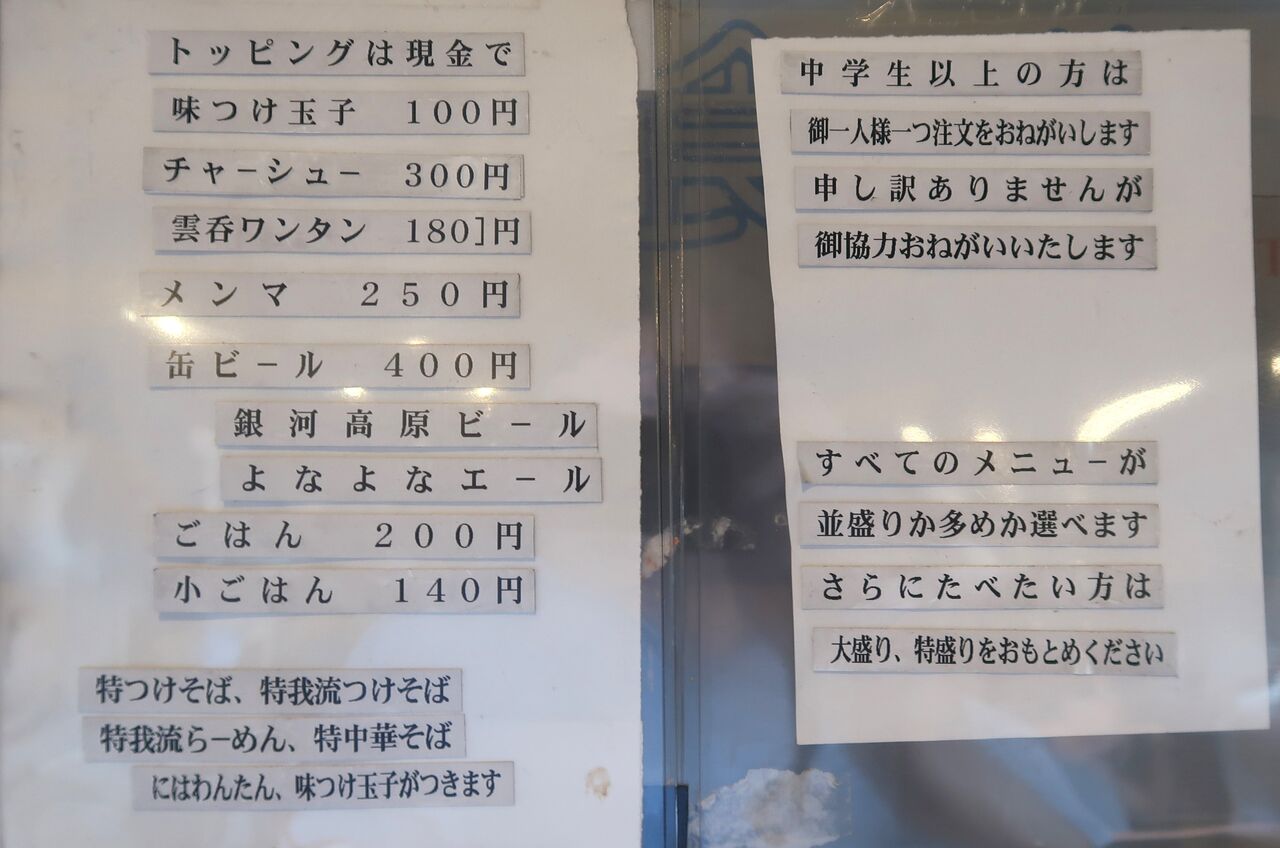 トッピングは現金で
味つけ玉子 100円
チャーシュー 300円
雲呑ワンタン 180]円
メンマ 250円
缶ビール 400円
銀河高原ビール
よなよなエール
ごはん 200円
小ごはん 140円
特つけそば、特我流つけそば
特我流らーめん、特中華そば
にはわんたん、味つけ玉子がつきます
中学生以上の方は
御一人様一つ注文をおねがいします
申し訳ありませんが
御協力おねがいいたします
すべてのメニューが
並盛りか多めか選べます
さらにたべたい方は
大盛り、特盛りをおもとめください